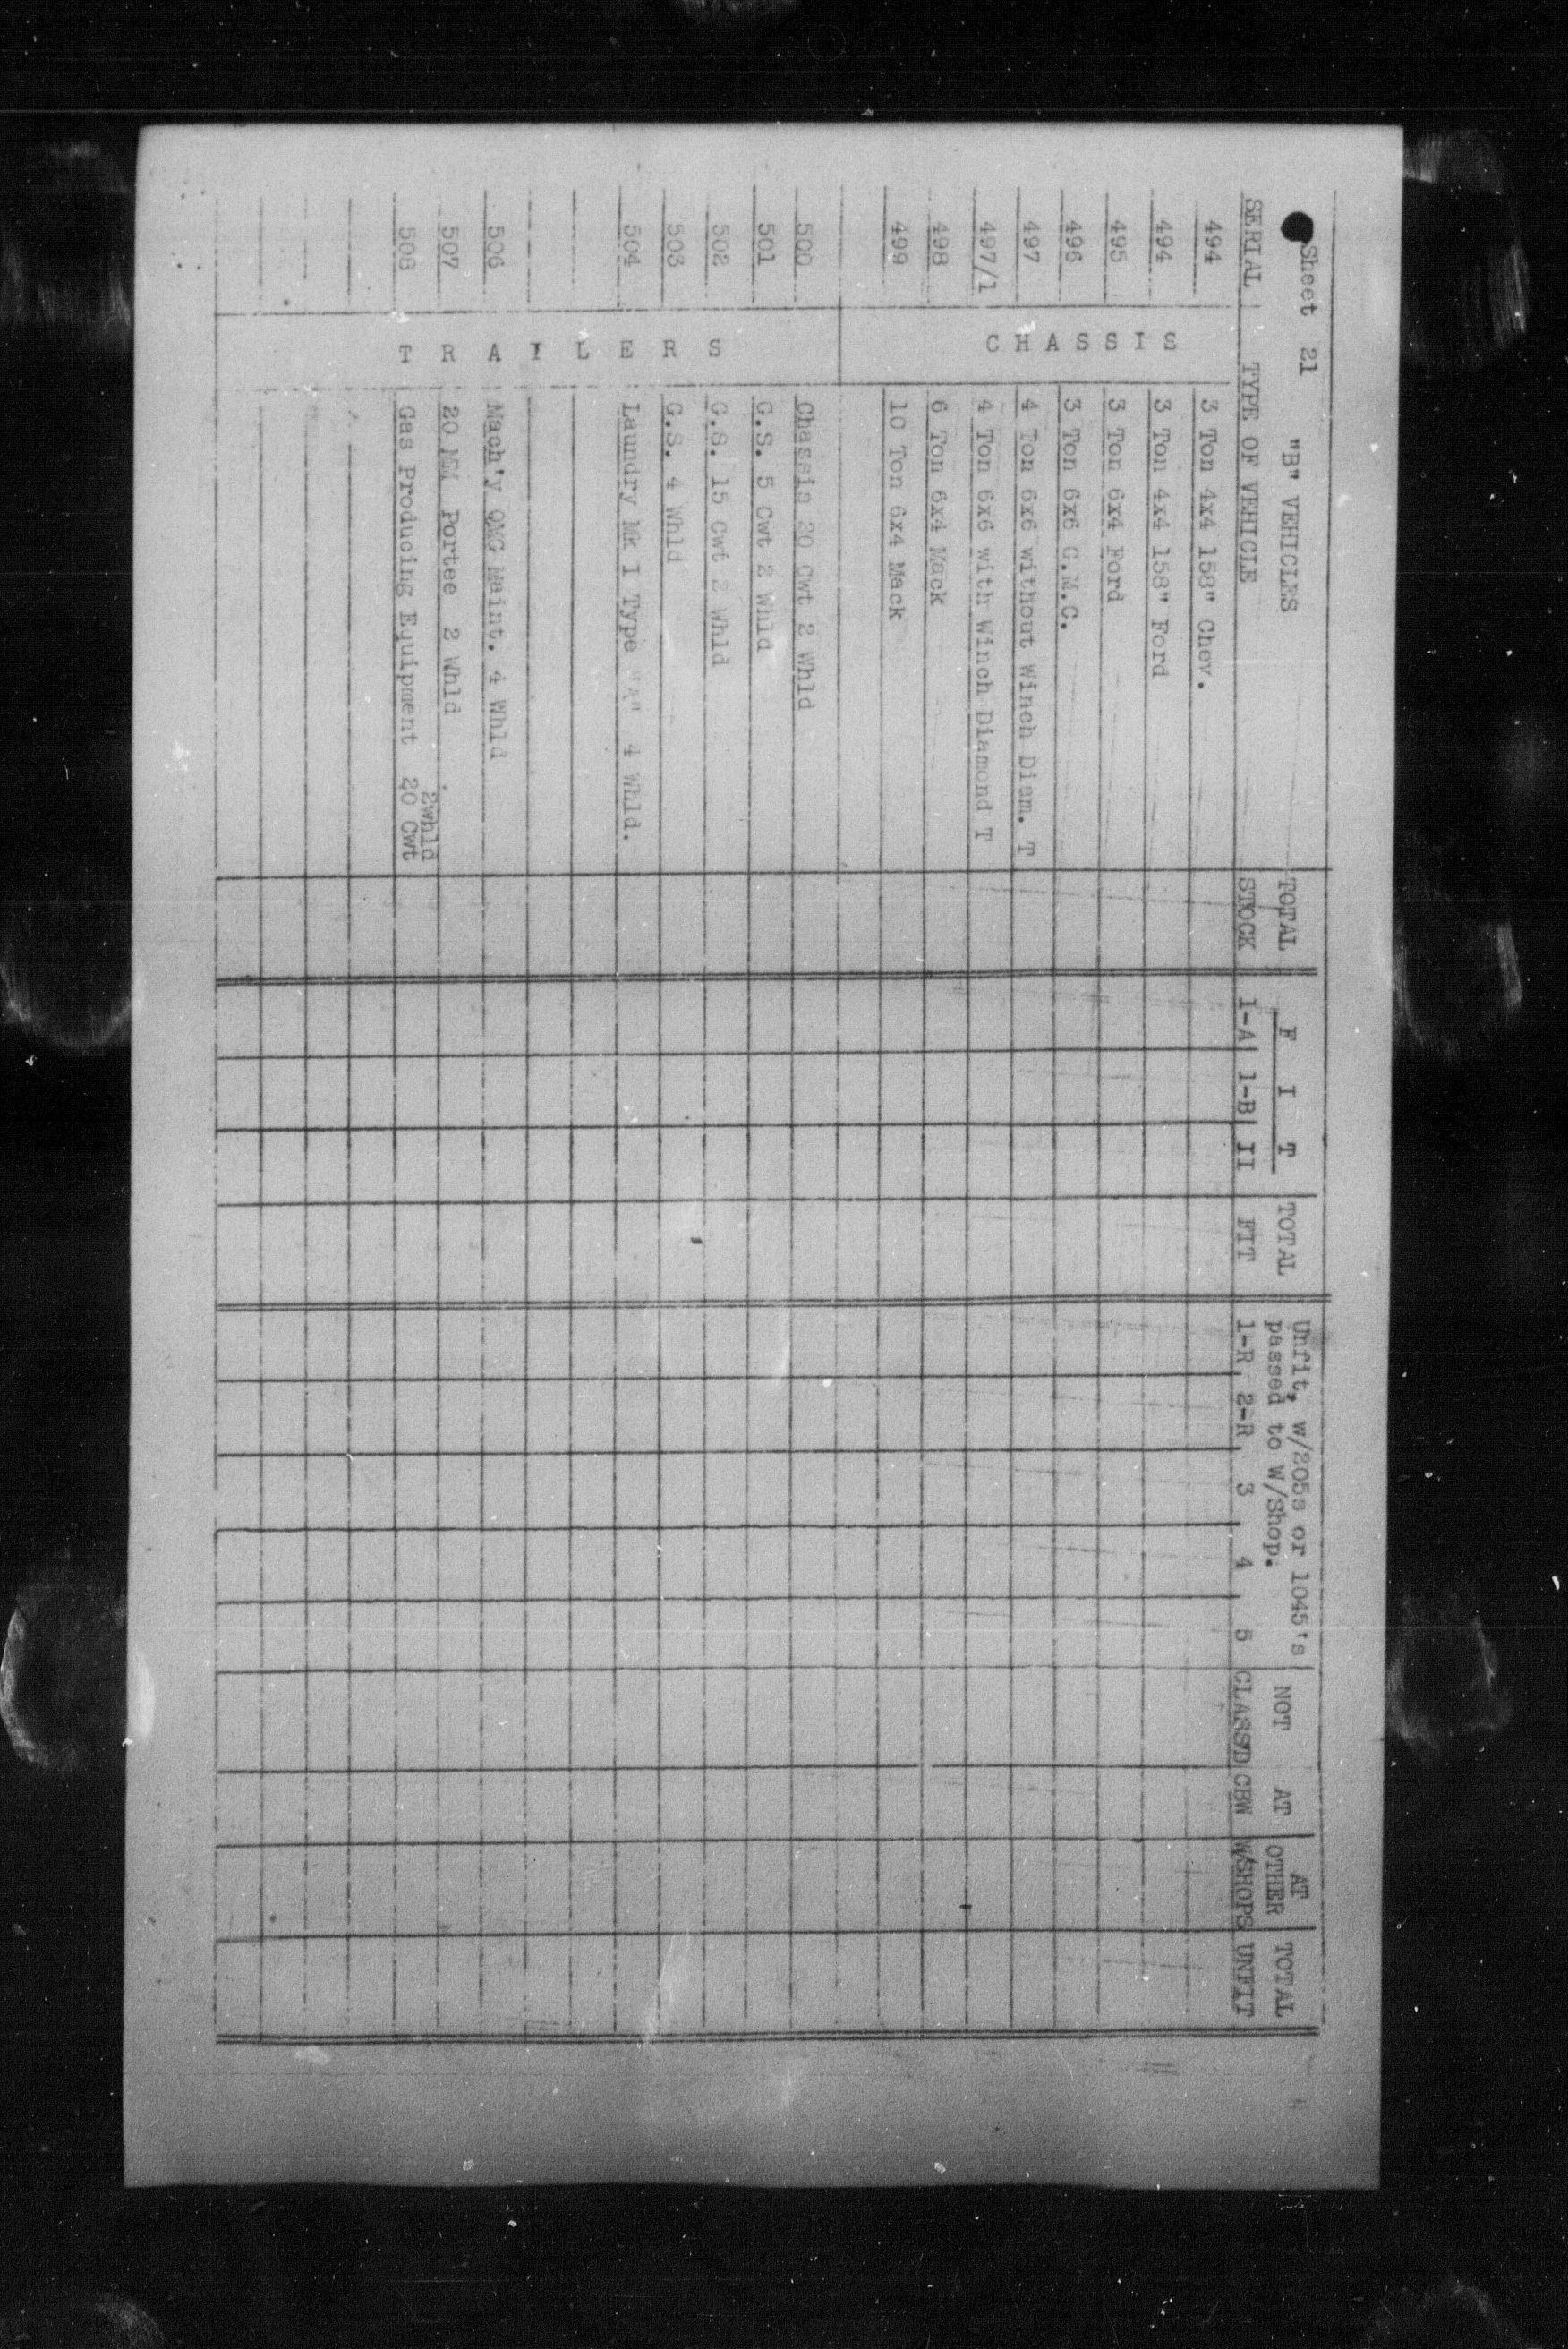 Sheet 21 "B" VEHICLES
TOTAL F I T TOTAL Unfit, w/205s or 1045's NOT AT AT OTHER TOTAL
passed to W/Shop.
SERIAL TYPE OF VEHICLE STOCK 1-A 1-B II FIT 1-R 2-R 3 4 5 CLASS'D CBW W/SHOPS UNFIT
CHASSIS
494 3 Ton 4x4 158" Chev.
494 3 Ton 4x4 158" Ford
495 3 Ton 6x4 Ford
496 3 Ton 6x6 G.M.C.
497 4 Ton 6x6 without Winch Diam. T
497/1 4 Ton 6x6 with Winch Diamond T
498 6 Ton 6x4 Mack
499 10 Ton 6x4 Mack
TRAILERS
500 Chassis 20 Cwt 2 Whld
501 G.S. 5 Cwt 2 Whld
502 G.S. 15 Cwt 2 Whld
503 G.S. 4 Whld
504 Laundry Mk 1 Type "A" 4 Whld.
506 Mach'y QMG Maint. 4 Whld
507 20 MM Portee 2 Whld
2whld
508 Gas Producing Equipment 20 Cwt